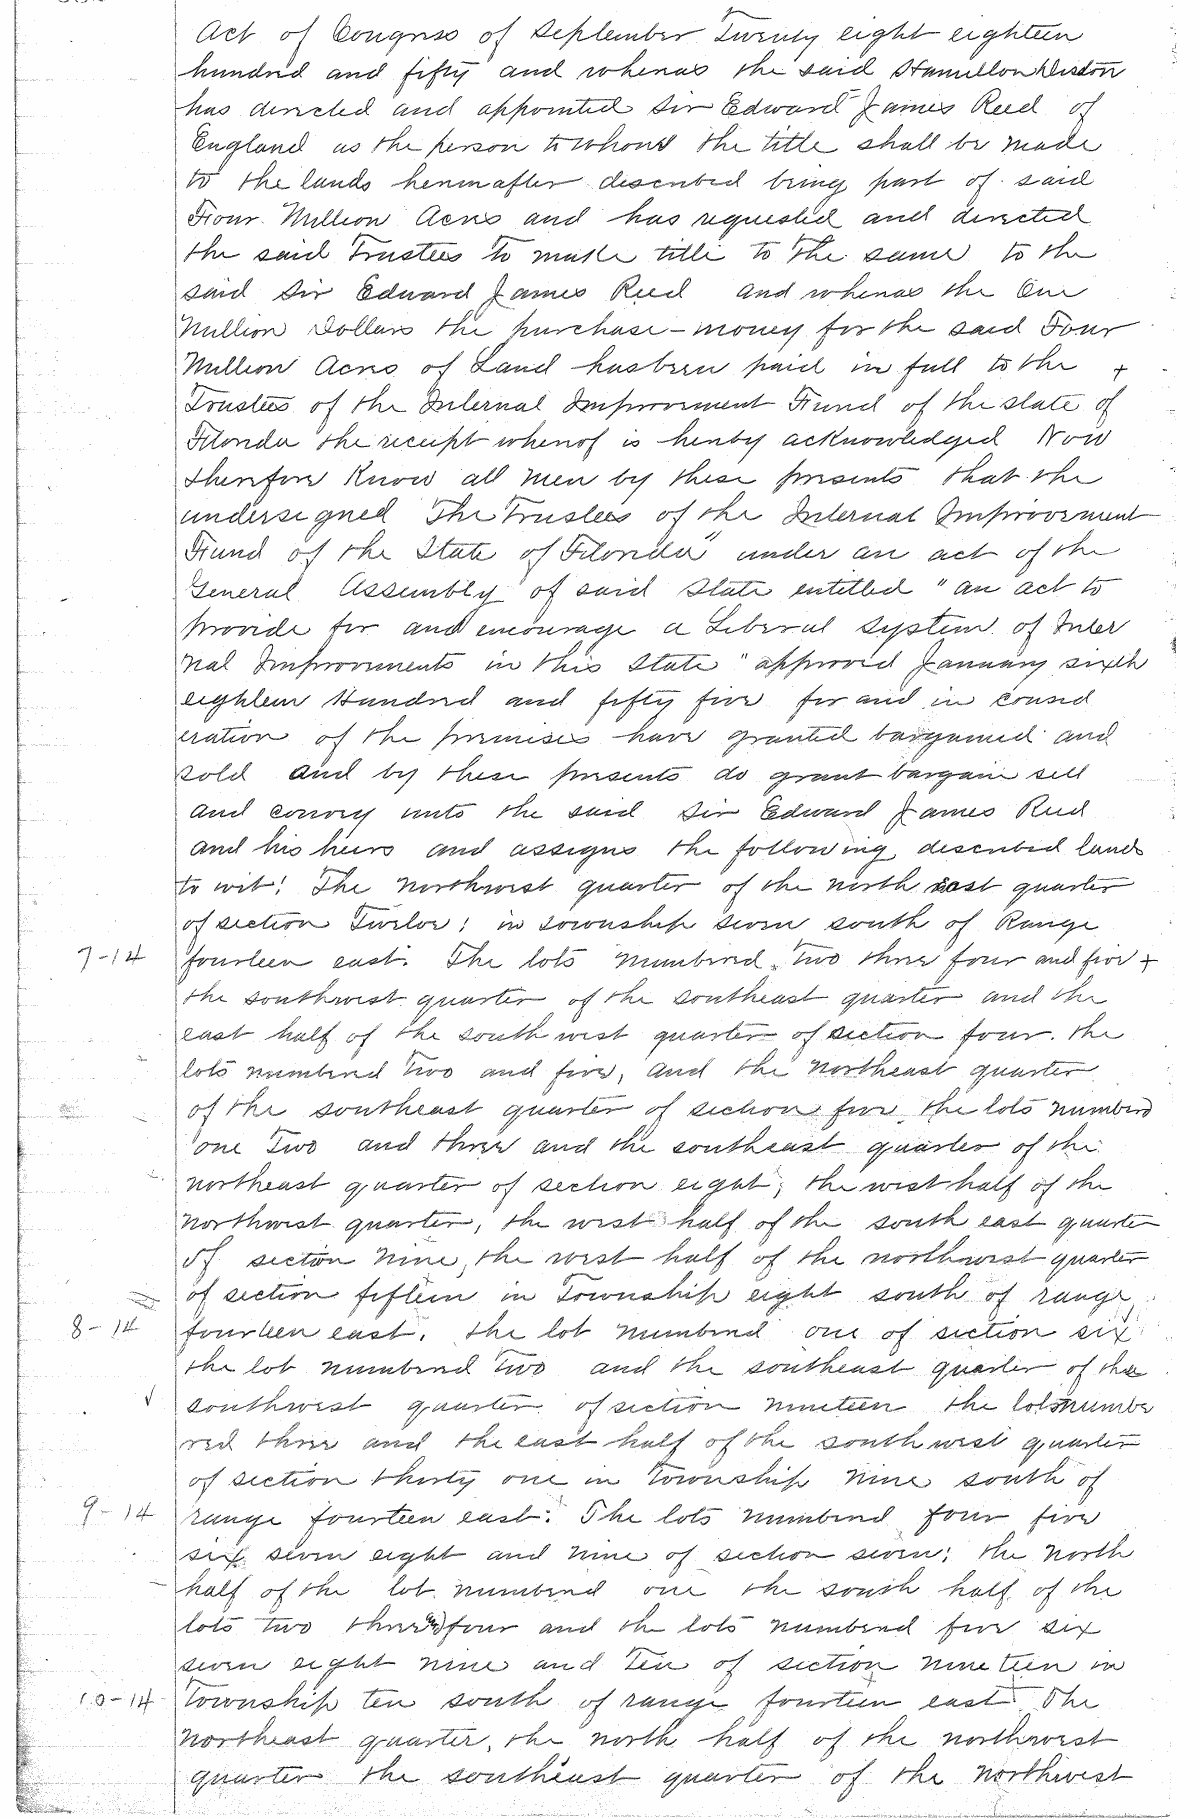 Act of Congress of September Twenty eight eighteen
hundred and fifty and whereas the said Hamilton Disston
has directed and appointed Sir Edward James Reed of
England as the person to whom the title shall be made
to the lands hereinafter described being part of said
Four Million Acres and has requested and directed
the said Trustees to make title to the same to the
said Sir Edward James Reed and whereas the One
Million Dollars the purchase-money for the said Four
Million Acres of Land has been paid in full to the +
Trustees of the Internal Improvement Fund of the state of
Florida the receipt whereof is hereby acknowledged Now
therefore Know all men by these presents that the
undersigned The Trustees of the Internal Improvement
Fund of the State of Florida" under an act of the
General Assembly of said State entitled "an act to
provide for and encourage a Liberal System of Inter
nal Improvements in this State" approved January sixth
eighteen Hundred and fifty five for and in consid
eration of the premises have granted bargained and
sold and by these presents do grant bargain sell
and convey unto the said Sir Edward James Reed
and his heirs and assigns the following described lands
to wit: The northwest quarter of the north east quarter
of section Twelve; in township seven south of Range
7-14 fourteen east. The lots numbered two three four and five +
the southwest quarter of the southeast quarter and the
east half of the south west quarter of section four. the
lots numbered two and five, and the northeast quarter
of the southeast quarter of section five, the lots numbered
one two and three and the southeast quarter of the
northeast quarter of section eight; the west half of the
northwest quarter, the west half of the south east quarter
of section nine, the west half of the northwest quarter
of section fifteen in Township eight south of range
8-14 fourteen east. the lot numbered one of section six
the lot numbered two and the southeast quarter of the
southwest quarter of section nineteen the lots numbe
red three and the east half of the southwest quarter
of section thirty one in Township nine south of
9-14 range fourteen east. The lots numbered four five
six seven eight and nine of section seven; the north
half of the lot numbered one the south half of the
lots two three & four and the lots numbered five six
seven eight nine and Ten of section nineteen in
10-14 Township ten south of range fourteen east The
northeast quarter, the north half of the northwest
quarter the southeast quarter of the northwest